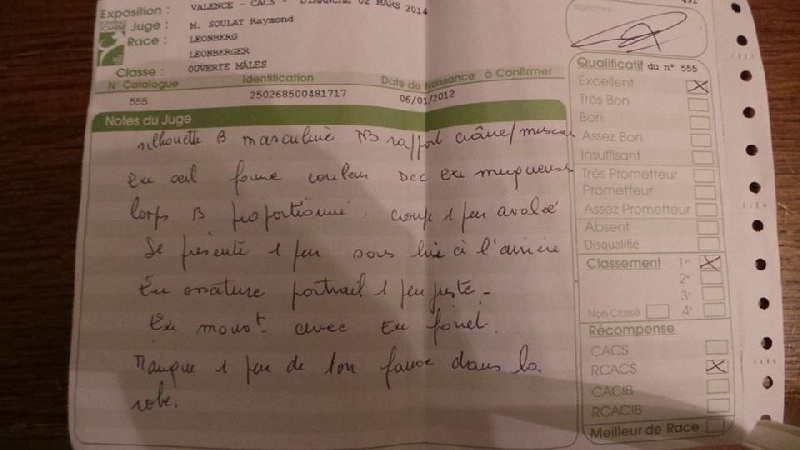 Exposition : VALENCE - CACS - DIMANCHE 02 MARS 2014
Juge : M. SOULAT Raymond
Race : LEONBERG
LEONBERGER
Classe : OUVERTE MÂLES
N° Catalogue Identification Date de Naissance à Confirmer
555 250268500481717 06/01/2012
Notes du Juge
silhouette B masculine TB rapport crâne/museau
Ex œil forme couleur Ex muqueuses
Corps B proportionné. croupe 1 peu avalée
Se présente 1 peu sous lui à l'arrière
Ex ossature poitrail 1 peu juste.
Ex mouvt avec Ex
Manque 1 peu de ton fauve dans la
robe.
Signature :
Qualificatif du n° 555
Excellent X
Très Bon
Bon
Assez Bon
Insuffisant
Très Prometteur
Prometteur
Assez Prometteur
Absent
Disqualifié
Classement 1er X
2e
3e
Non Classé 4e
Récompense
CACS
RCACS X
CACIB
RCACIB
Meilleur de Race